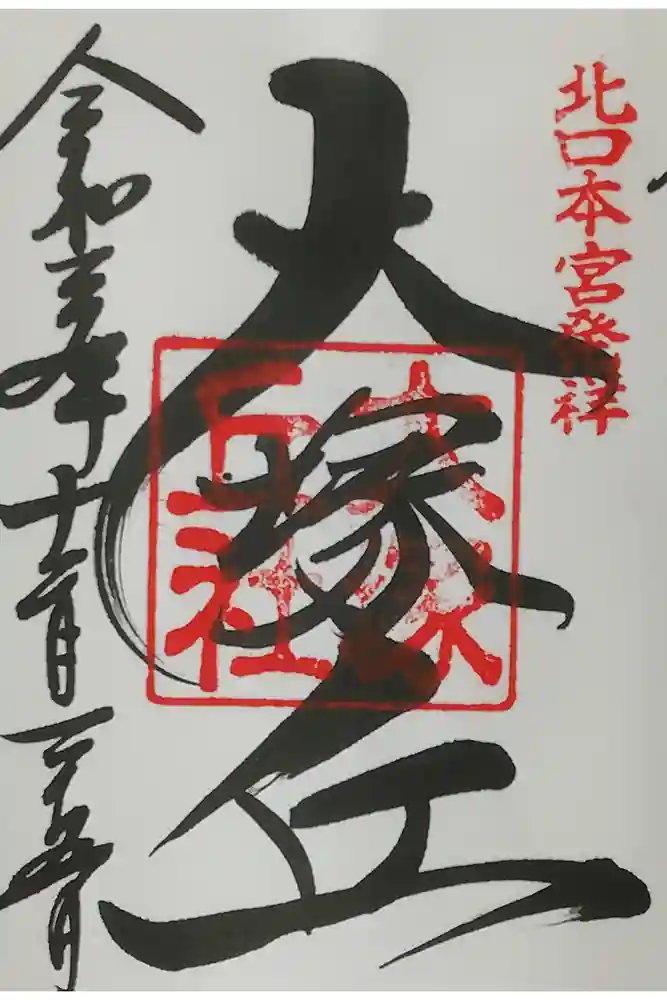 北口本宮發祥
大塚丘
大塚
丘社
令和三年十二月二十五日